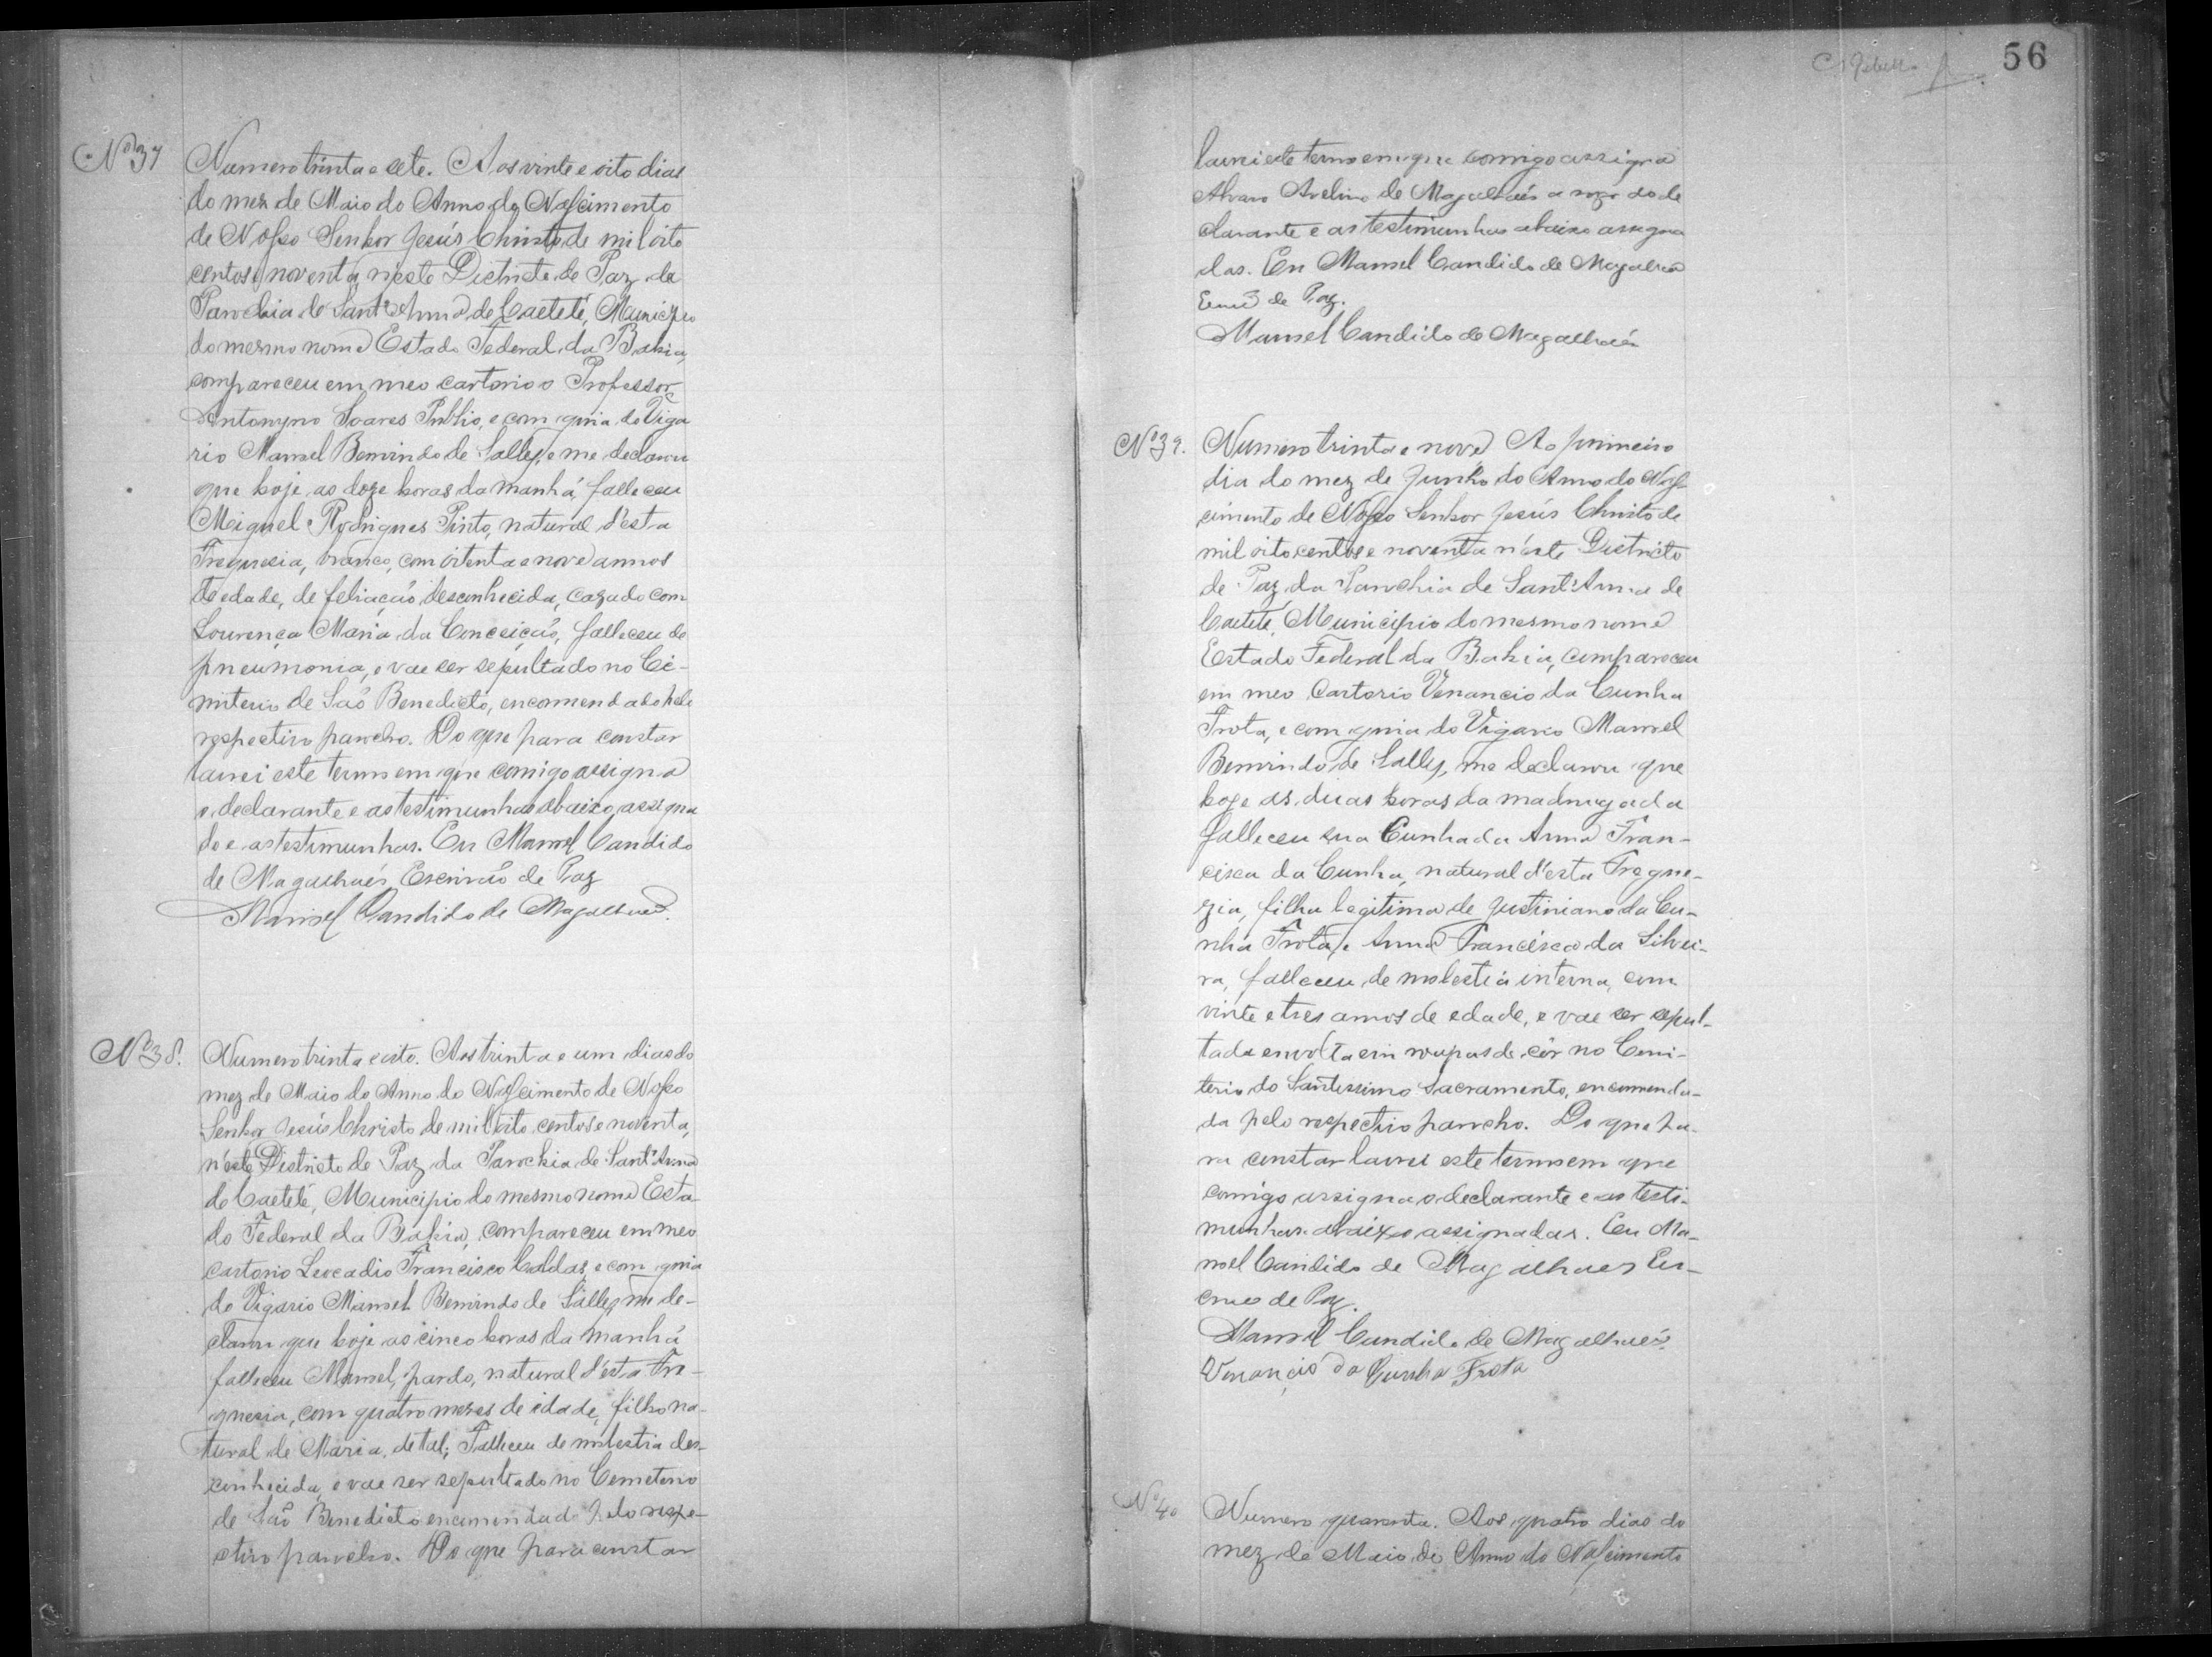 Nº 37
Numero trinta e sete. Aos vinte e oito dias
do mez de Maio do Anno do Nascimento
de Nosso Senhor Jesús Christo de mil oito
centos e noventa n'este Dictricto de Paz da
Parochia de Sant'Anna de Caeteté, Municipio
do mesmo nome Estado Federal da Bahia,
compareceu em meo cartorio o Professor
Antonyno Soares Publio, e com guia do Viga
rio Manoel Bemvindo de Salles, e me declarou
que hoje, as doze horas da manhá, falleceu
Meiguel Rodrigues Pinto, natural d'esta
Freguesia, branco, com oitenta e nove annos
de edade, de feliação desconhecida, cazado com
Lourença Maria da Conceição, falleceu de
pneumonia, e vae ser sepultado no Ci-
miterio de São Benedicto, encommendado pelo
respectivo parocho. Do que para constar
lavrei este termo em que comigo assigna
o declarante e as testimunhas abaixo assigna
do e as testimunhas. Eu Manoel Candido
de Magalhaés Escrivão de Paz
Manoel Candido de Magalhaes.
Nº 38.
Numero trinta e oito. Aos trinta e um dias do
mez de Maio do Anno do Nascimento de Nosso
Senhor Jesús Christo de mil oito centos e noventa,
n'este Districto de Paz da Parochia de Sant'Anna
de Caeteté, Municipio do mesmo nome Esta-
do Federal da Bahia, compareceu em meo
cartorio Leocadio Francisco Caldas, e com guia
do Vigario Manoel Bemvindo de Salles, me de-
clarou que hoje as cinco horas da manhã
falleceu Manoel, pardo, natural d'esta Fre-
guesia, com quatro mezes de idade, filho na-
tural de Maria de tal; Falleceu de molestia des-
conhecida, e vae ser sepultado no Cemeterio
de São Benedicto encommendado pelo respe-
ctivo parocho. Do que para constar
56
lavrei este termo em que comigo assigna
Alvaro Avelino de Magalhaés a rogo do de
clarante e as testimunhas abaixo assigna
das. Eu Manoel Candido de Magalhaes
de Paz.
Manoel Candido de Magalhaés
Nº 39.
Numero trinta e nove Ao primeiro
dia do mez de Junho do Anno do Nas-
cimento de Nosso Senhor Jesús Christo de
mil oito centos e noventa n'este Districto
de Paz da Parochia de Sant'Anna de
Caeteté, Municipio do mesmo nome
Estado Federal da Bahia, compareceu
em meo Cartorio Venancio da Cunha
Frota, e com guia do Vigario Manoel
Bemvindo de Salles, me declarou que
hoje as duas horas da madrugada
falleceu sua Cunhada Anna Fran-
cisca da Cunha, natural d'esta Fregue-
zia, filha legitima de Justiniano da Cu-
nha Frota, e Anna Francisca da Silvei-
ra, falleceu de molestia interna, com
vinte e tres annos de edade, e vae ser sepul-
tada envolta em roupas de côr no Cemi-
terio do Santissimo Sacramento, encommenda-
da pelo respectivo parocho. Do que pa-
ra constar lavrei este termo em que
comigo assigna o declarante e as testi-
munhas abaixo assignadas. Eu Ma-
noel Candido de Magalhaes Es-
de Paz.
Manoel Candido de Magalhaés.
Venancio da Cunha Frota
Nº 40
Numero quarenta. Aos quatro dias do
mez de Maio do Anno do Nascimento